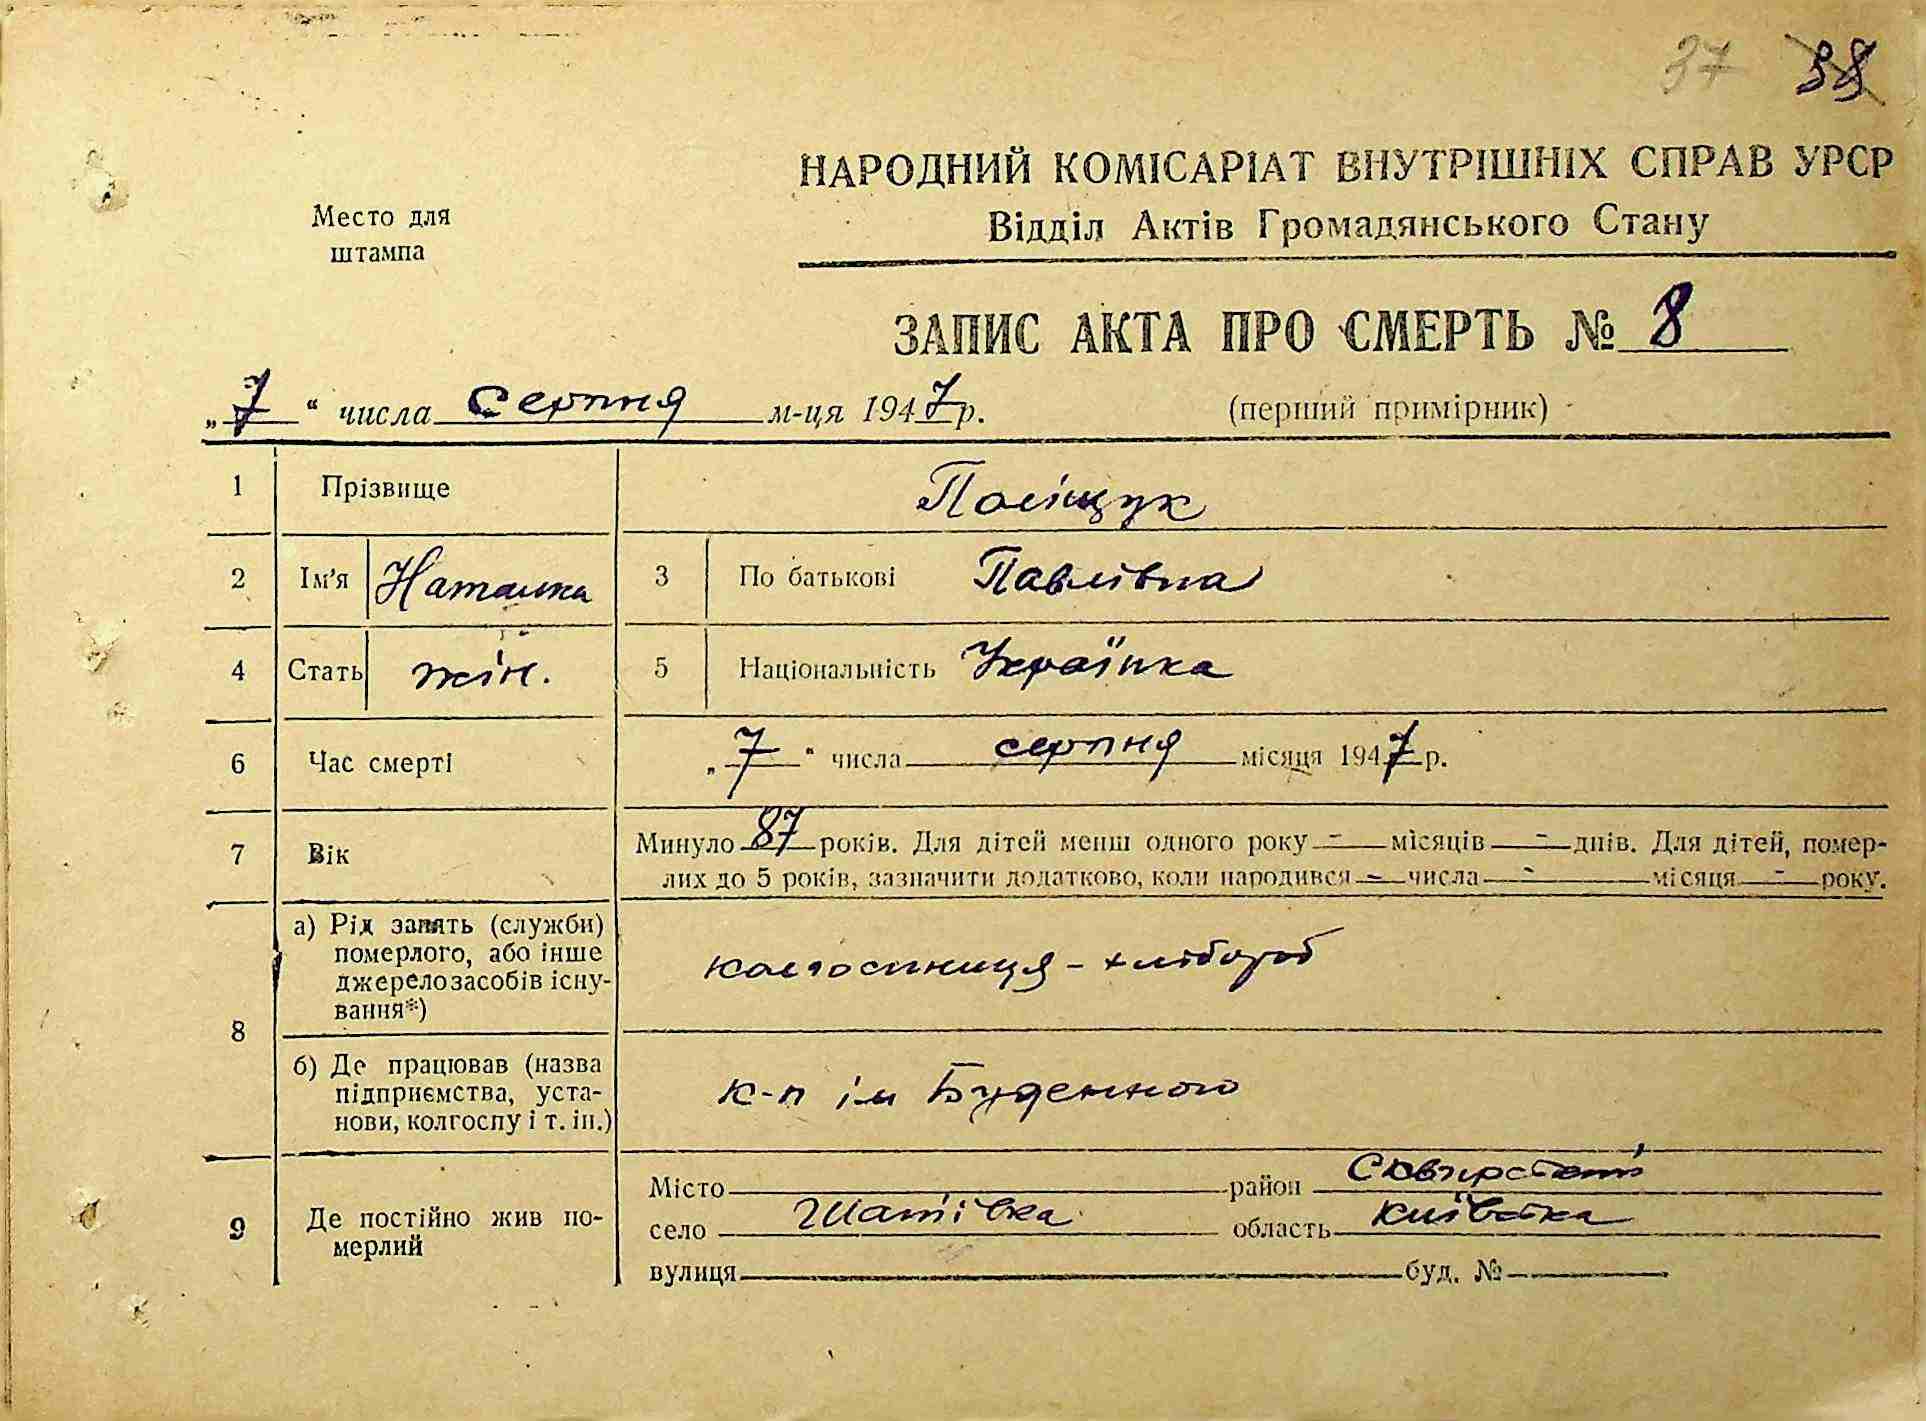 37 38
НАРОДНИЙ КОМІСАРІАТ ВНУТРІШНІХ СПРАВ УРСР
Место для
штампа
Відділ Актів Громадянського Стану
ЗАПИС АКТА ПРО СМЕРТЬ № 8
„7“ числа серпня м-ця 1947 р. (перший примірник)
1 Прізвище Поліщук
2 Ім'я Наталка 3 По батькові Павлівна
4 Стать жін. 5 Національність Українка
6 Час смерті „7“ числа серпня місяця 1947 р.
7 Вік Минуло 87 років. Для дітей менш одного року - місяців - днів. Для дітей, помер-
лих до 5 років, зазначити додатково, коли народився - числа - місяця - року.
8 а) Рід занять (служби)
померлого, або інше
джерело засобів існу-
вання*)
колгоспниця - хлібороб
б) Де працював (назва
підприємства, уста-
нови, колгоспу і т. ін.)
к-п ім Буденного
9 Де постійно жив по-
мерлий
Місто район Сквирський
село Шаліївка область Київська
вулиця буд. №